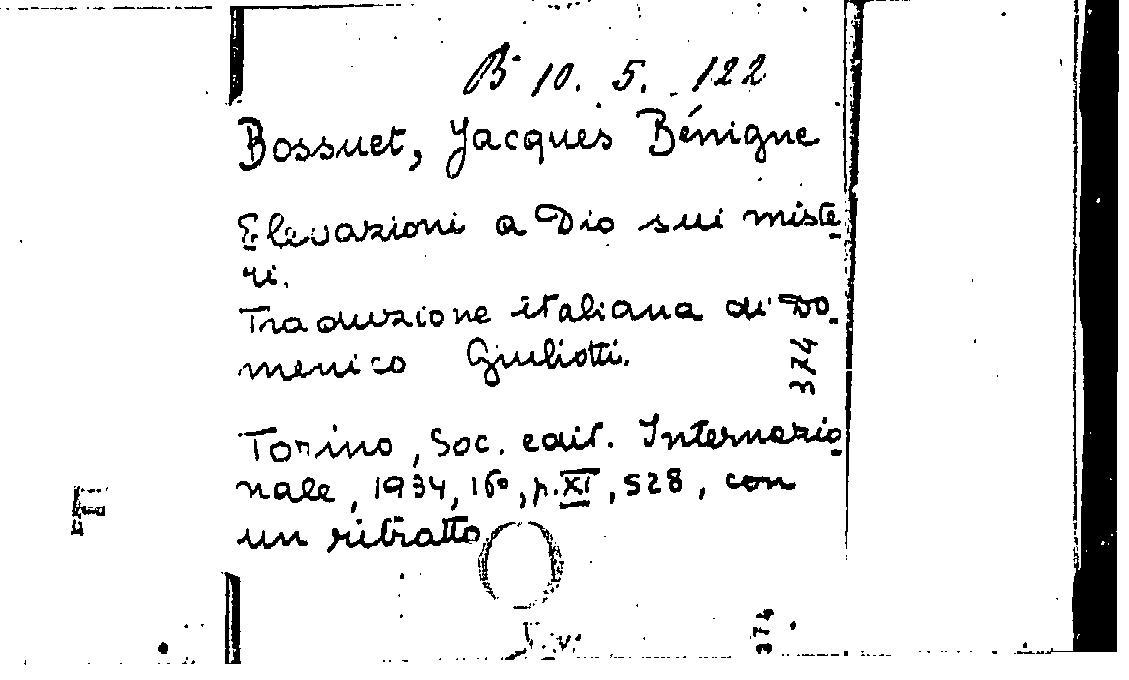 B 10. 5. 122
Bossuet, Jacques Bénigne
Elevazioni a Dio sui miste-
ri.
Traduzione italiana di Do-
menico Giuliotti.
374
Torino, Soc. edit. Internazio-
nale, 1934, 16°, p. XI, 528, con
un ritratto
F
374